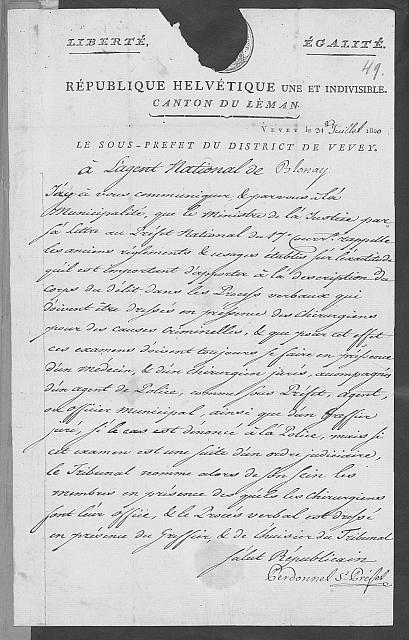 LIBERTÉ, ÉGALITÉ.
49.
RÉPUBLIQUE HELVÉTIQUE UNE ET INDIVISIBLE.
CANTON DU LÉMAN.
VEVEY le 31e Juillet 1800
LE SOUS-PREFET DU DISTRICT DE VEVEY.
à L'agent National de Blonay
J'ay à vous communiquer & par vous à la
Municipalité, que le Ministre de la Justice par
sa lettre au Préfet National du 17e Cour.t rappelle
les anciens réglements & usages établis sur l'exactitude
qu'il est important d'apporter à la description du
corps du délit dans les Procès verbaux qui
doivent être dressés en présence des chirurgiens
pour des causes criminelles, & que pour cet effet
ces examens doivent toujours se faire en présence
d'un médecin, & d'un chirurgien jurés, accompagnés
d'un agent de Police, comme sous Préfet, agent,
ou officier municipal, ainsi que d'un Greffier
juré, si le cas est dénoncé à la Police, mais si
cet examen est une suite d'un ordre judiciaire,
le Tribunal nomme alors de son sein les
membres en présence des quels les chirurgiens
font leur office, & le Procès verbal est dressé
en présence du Greffier, & de l'huissier du Tribunal
Salut Républicain
Perdonnet S. Préfet